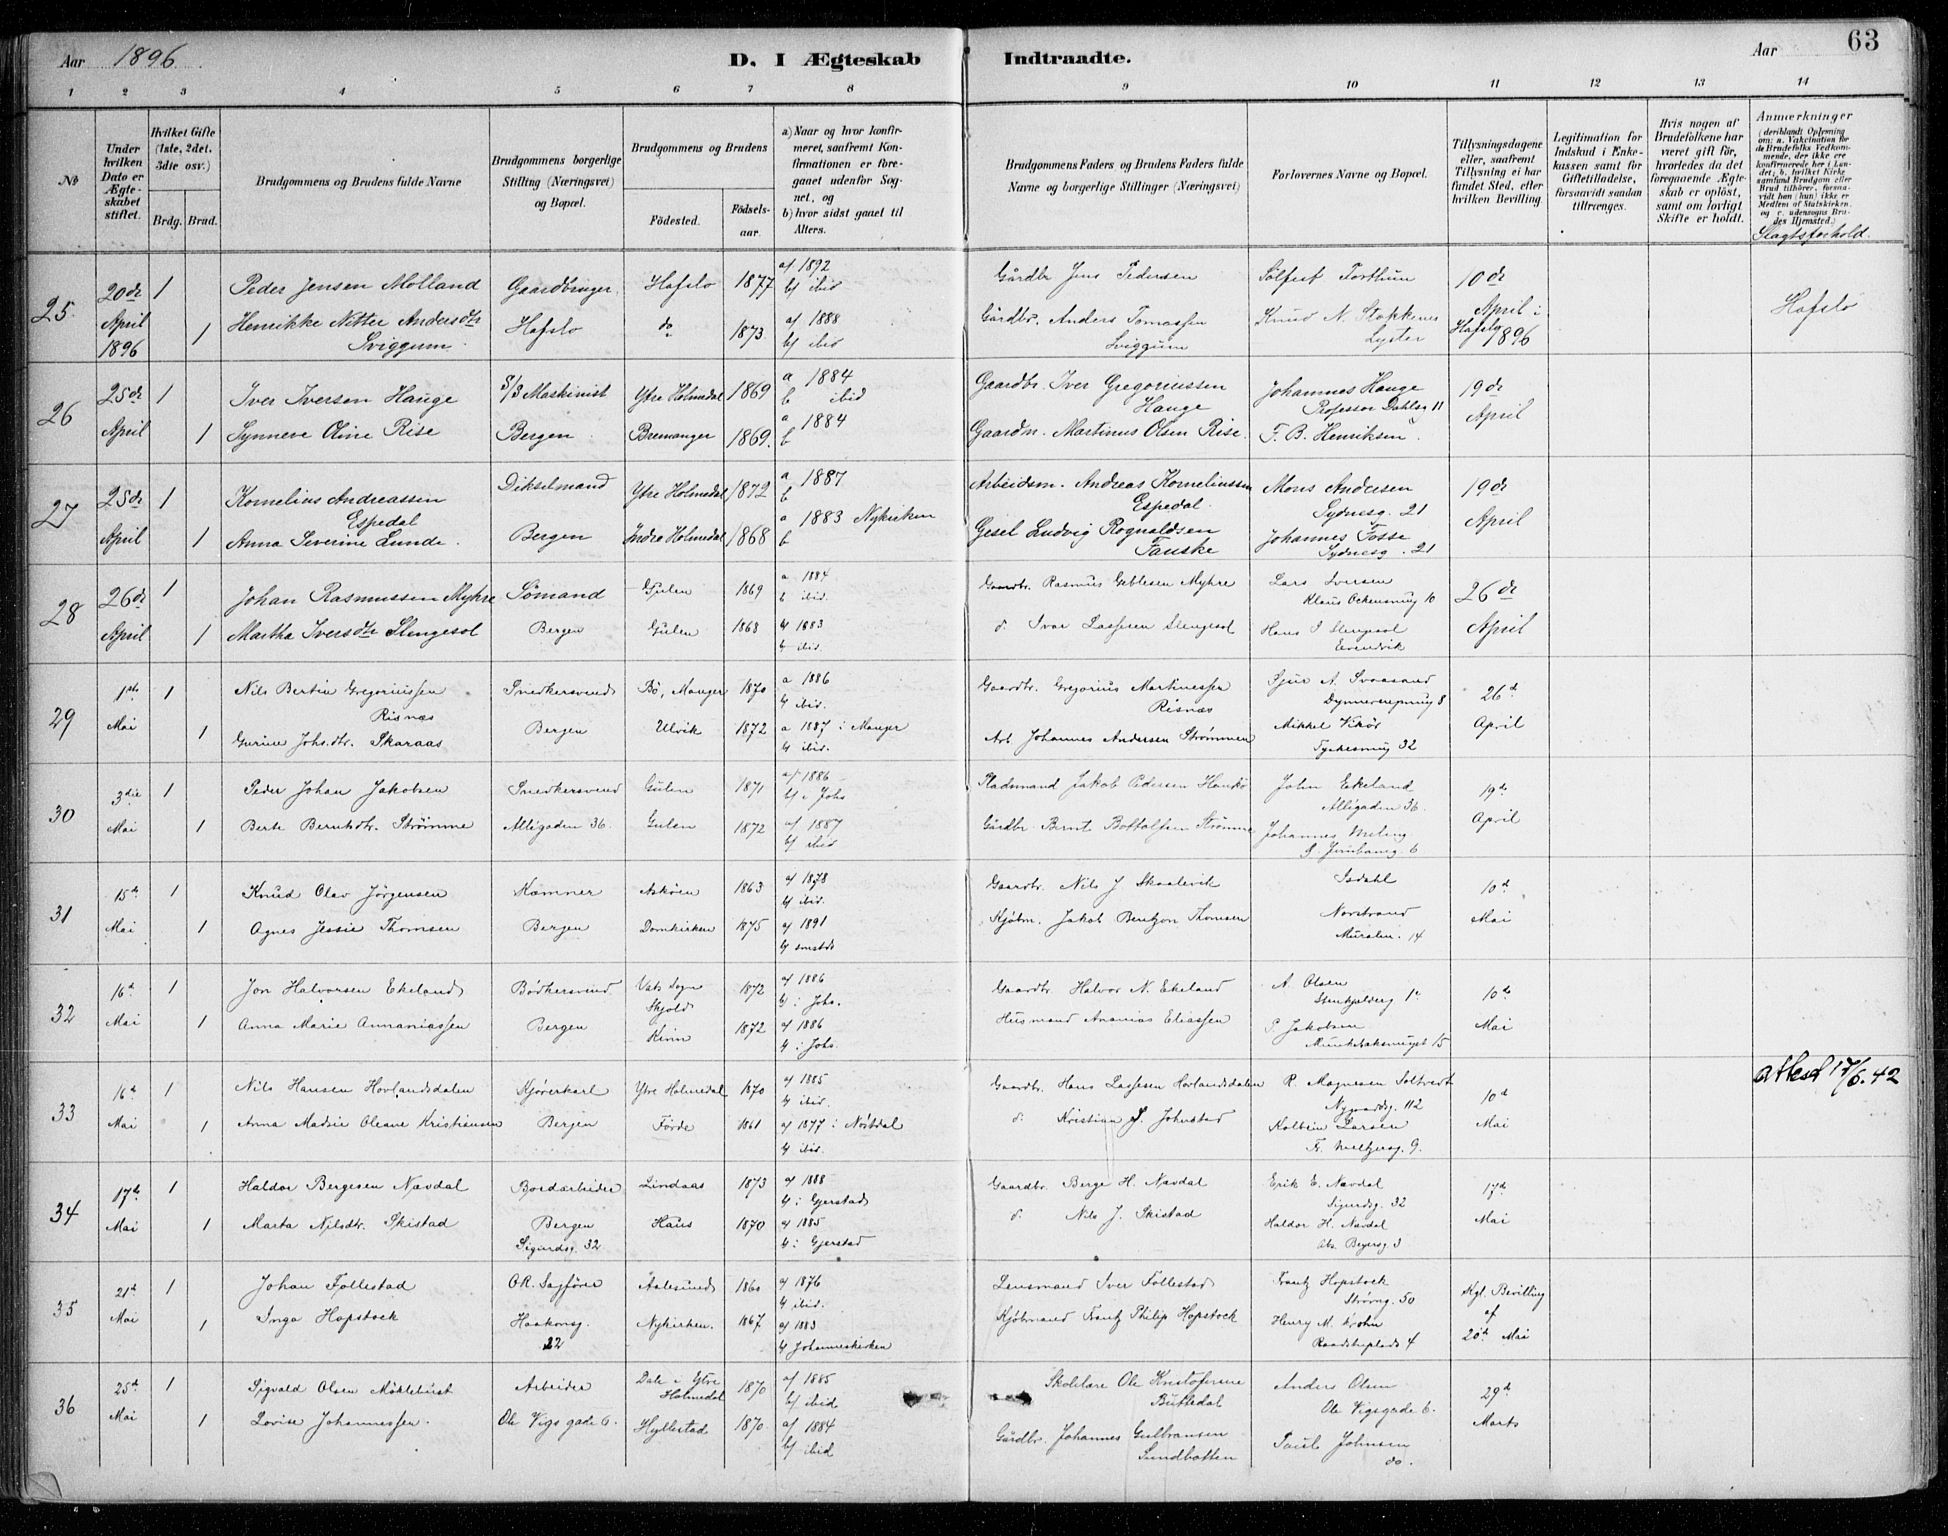 Aar 1896.
D. I Ægteskab Indtraadte.
Aar 63
1 2 3 4 5 6 7 8 9 10 11 12 13 14
No
Under hvilken Dato er Ægteskabet stiftet.
Hvilket Gifte (1ste, 2det, 3die osv.)
Brdg. Brud.
Brudgommens og Brudens fulde Navne
Brudgommens borgerlige Stilling (Næringsvei) og Bopæl.
Brudgommens og Brudens
Födested. Födsels-aar.
a) Naar og hvor konfirmeret, saafremt Konfirmationen er foregaaet udenfor Sognet, og
b) hvor sidst gaaet til Alters.
Brudgommens Faders og Brudens Faders fulde Navne og borgerlige Stillinger (Næringsvei)
Forlovernes Navne og Bopæl.
Tillysningsdagene eller, saafremt Tillysning ei har fundet Sted, efter hvilken Bevilling.
Legitimation for Indskud i Enkekassen samt for Giftetilladelse, forsaavidt saadan tiltrænges.
Hvis nogen af Brudefolkene har været gift för, hvorledes da det foregaaende Ægteskab er oplöst, samt om lovligt Skifte er holdt.
Anmærkninger
Slagtsforhold.
25 20de April 1896 1 Peder Jensen Molland Gaardbruger Hafslo 1877 a/ 1892 b/ ibid Gårdbr Jens Pedersen Sølfest Forthun 10de April i Hafslo 1896 Hafslo
1 Henrikke Nitter Andersdtr Sviggum Hafslo do 1873 a/ 1888 b/ ibid Gårdbr. Anders Tomassen Sviggum Knud N. Stokkenes Lyster
26 25de April 1 Iver Iversen Hauge S/S Maskinist Ytre Holmedal 1869 a 1884 b ibid Gaardbr. Iver Gregoriussen Hauge Johannes Hauge Professor Dahlsg 11 19de April
1 Synneve Oline Rise Bergen Bremanger 1869. a 1884 b Gaardm. Martinus Olsen Rise. F. B. Henriksen
27 25de April 1 Kornelius Andreassen Espedal Dikselmand Ytre Holmedal 1872 a 1887 b Arbeidsm. Andreas Korneliussen Espedal Mons Andersen Sydnesg. 21 19de April
1 Anna Severine Lunde. Bergen Indre Holmedal 1868 a 1883 Nykirken b Gesel Ludvig Rognaldsen Fauske Johannes Fosse Sydnesg. 21
28 26de April 1 Johan Rasmussen Myhre Sømand Gulen 1869 a 1884 b ibid. Gaardbr. Rasmus Myhre Lars Iversen Klaus Ockensmug 10 26de April
1 Martha Iversdtr Slengesol Bergen Gulen 1868 a 1883 b ibid. d. Ivar Lassesen Slengesol Hans Slengesol Evendvik
29 1ste Mai 1 Nils Bertin Gregoriussen Risnæs Snedkersvend Bö, Manger 1870 a 1886 b ibid. Gaardbr. Gregorius Martinussen Risnæs Sjur A. Svaasand 8 26d April
1 Gurine Johs.dtr. Skaraas Bergen Ulvik 1872 a 1887 i Manger b ibid. Arb Johannes Andersen Strømmen Mikkel Vikør 32
30 3die Mai 1 Peder Johan Jakobsen Snedkersvend Gulen 1871 a/ 1886 b/ i Johs Pladsmand Jakob Pedersen Haukø John Ekeland Alligaden 36. 19de April
1 Berte Berntsdtr. Strømme Alligaden 36. Gulen 1872 a/ 1887 b/ ibid Gårdbr Bernt Bottolfsen Strømme Johannes Meling 6
31 15d Mai 1 Knud Olav Jörgensen Kæmner Askøen 1863 a/ 1878 b/ ibid. Gaardbr. Nils J Skaalevik Isdahl 10d Mai
1 Agnes Jessie Thomsen Bergen Domkirken 1875 a/ 1891 b/ smstds Kjøbm. Jakob Bentzon Thomsen Norstrand Muralm. 14
32 16d Mai 1 Jon Halvorsen Ekeland Bödkersvend Vats Sogn Skjold 1872 a/ 1886 b/ i Johs. Gaardbr. Halvor N. Ekeland A. Olsen Stenkjelderg 1 10de Mai
1 Anna Marie Annaniassen Bergen Kinn 1872 a/ 1886 b/ i Johs. Husmand Ananias Eliassen P Jakobsen 15
33 16d Mai 1 Nils Hansen Hovlandsdalen Kjørerkarl Ytre Holmedal 1870 a/ 1885 b/ ibid. Gaardbr. Hans Lassesen Hovlandsdalen R. Magnesen Nygaardsg. 112 10d Mai attest 17/6.42
1 Anna Madsie Oleane Kristiansen Bergen Förde 1861 a/ 1877 i b/ ibid. d. Kristian Kolbein Larsen Fr. Meltzersg. 9.
34 17de Mai 1 Haldor Bergesen Nævdal Bordarbeider Lindaas 1873 a/ 1888 b/ i Gjerstad Gaardbr. Berge H. Nævdal Erik E. Nævdal Sigurdsg. 32 17d Mai
1 Marta Nilsdtr. Skistad Bergen Sigurdsg. 32 Haus 1870 a/ 1885 b/ i Gjerstad d. Nils J. Skistad Haldor H. Nævdal Abs. Beyersg. 3
35 21d Mai 1 Johan Follestad O.R. Sagfører Aalesund 1860 a/ 1876 b/ ibid. Lensmand Iver Follestad Frantz Hopstock Strømg. 50 Kgl. Bevilling af 20de Mai
1 Inga Hopstock Haakonsg. 22 Nykirken. 1867 a/ 1883 b/ Johanneskirken Kjøbmand Frantz Philip Hopstock Henry M. Krohn Raadstueplads 4
36 25d Mai 1 Sigvald Olsen Møklebust Arbeider Dale i Ytre Holmedal 1870 a/ 1885 b/ ibid Skolelære Ole Kristofersen Anders Olsen Ole Vigsgade 6. 29d Marts
1 Lovise Johannessen. Ole Vigs gade 6. Hyllestad 1870 a/ 1884 b/ ibid Gårdbr. Johannes Gulbransen Sundbotten Paul Johnsen do.